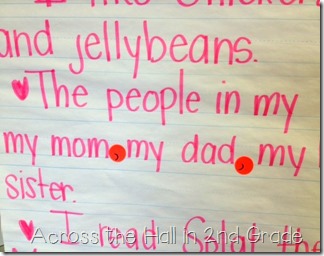 and jellybeans.
The people in my
my mom, my dad, my
sister.
I read Splat the
Across the Hall in 2nd Grade